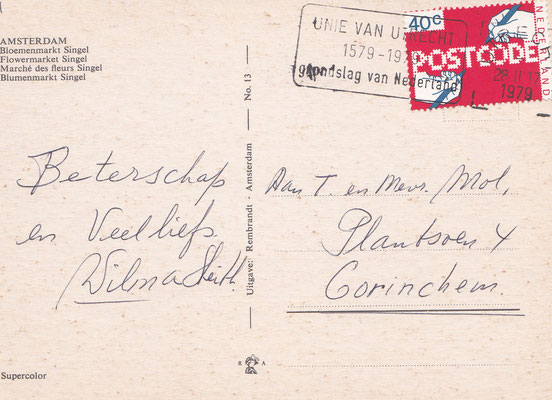 AMSTERDAM
Bloemenmarkt Singel
Flowermarket Singel
Marché des fleurs Singel
Blumenmarkt Singel
Beterschap
en Veel liefs.
Wilma
Supercolor
Uitgave: Rembrandt - Amsterdam
No. 13
R A
UNIE VAN UTRECHT
1579-1979
grondslag van Nederland
40c
POSTCODE
NEDERLAND
1979
Aan T. en Mevr. Mol,
Plantsoen 4
Gorinchem.